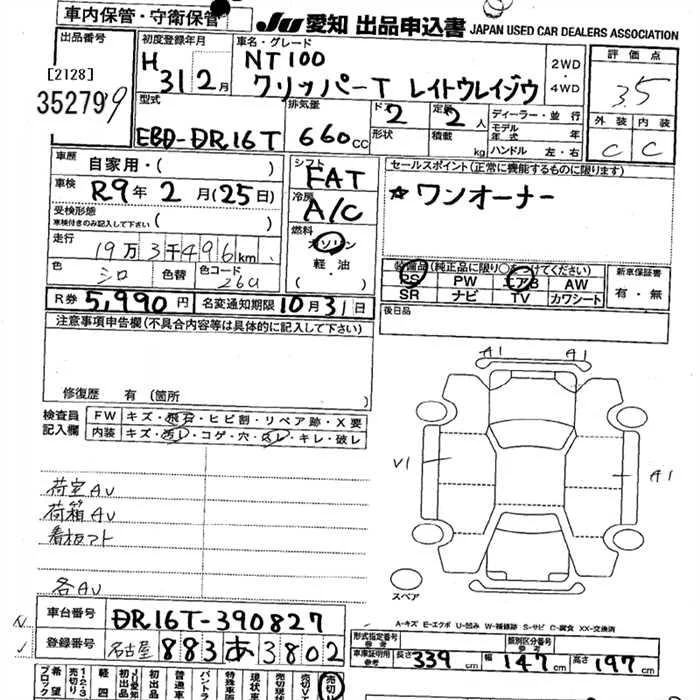 車内保管・守衛保管
JU 愛知 出品申込書 JAPAN USED CAR DEALERS ASSOCIATION
出品番号
[2128]
35279
初度登録年月
H 31 2月
車名・グレード
NT100
クリッパーT レイトウレイゾウ
2WD
・
4WD
評価点
3.5
外装 内装
C C
型式
EBD-DR16T
排気量
660cc
ドア 2
形状
定員 2人
積載 kg
ディーラー・並行
モデル年式 年
ハンドル 左・右
車歴 自家用・( )
車検 R9年 2月(25日)
受検形態
車検付きのみ記入して下さい ( )
走行 19万3千496km
色 シロ 色替 色コード 26U
シフト FAT
冷房 A/C
燃料
ガソリン
軽・油
( )
セールスポイント(正常に機能するものに限ります)
☆ワンオーナー
装備品(純正品に限り○をつけてください)
PS PW エアB AW
SR ナビ TV カワシート
新車保証書
有・無
後日品
R券 5,990円 名変通知期限 10月31日
注意事項申告欄(不具合内容等は具体的に記入して下さい)
修復歴 有 (箇所
検査員
記入欄
FW キズ・飛石・ヒビ割・リペア跡・X要
内装 キズ・汚レ・コゲ・穴・スレ・キレ・破レ
荷室AU
荷箱AU
看板アト
各AU
A1 A1
V1
A1
スペア
A-キズ E-エクボ U-凹み W-補修跡 S-サビ C-腐食 XX-交換済
車台番号 DR16T-390827
登録番号 名古屋 883 あ 3802
形式指定番号
参考
類別区分番号
参考
車庫証明用
参考
長さ 339cm 幅 147cm 高さ 197cm
希望
ブロック
1・2・3
売切り
軽四
JU愛知
初出品
初出品
普通車
バントラ
特殊車両
現状車
売切現状
売切V
売切